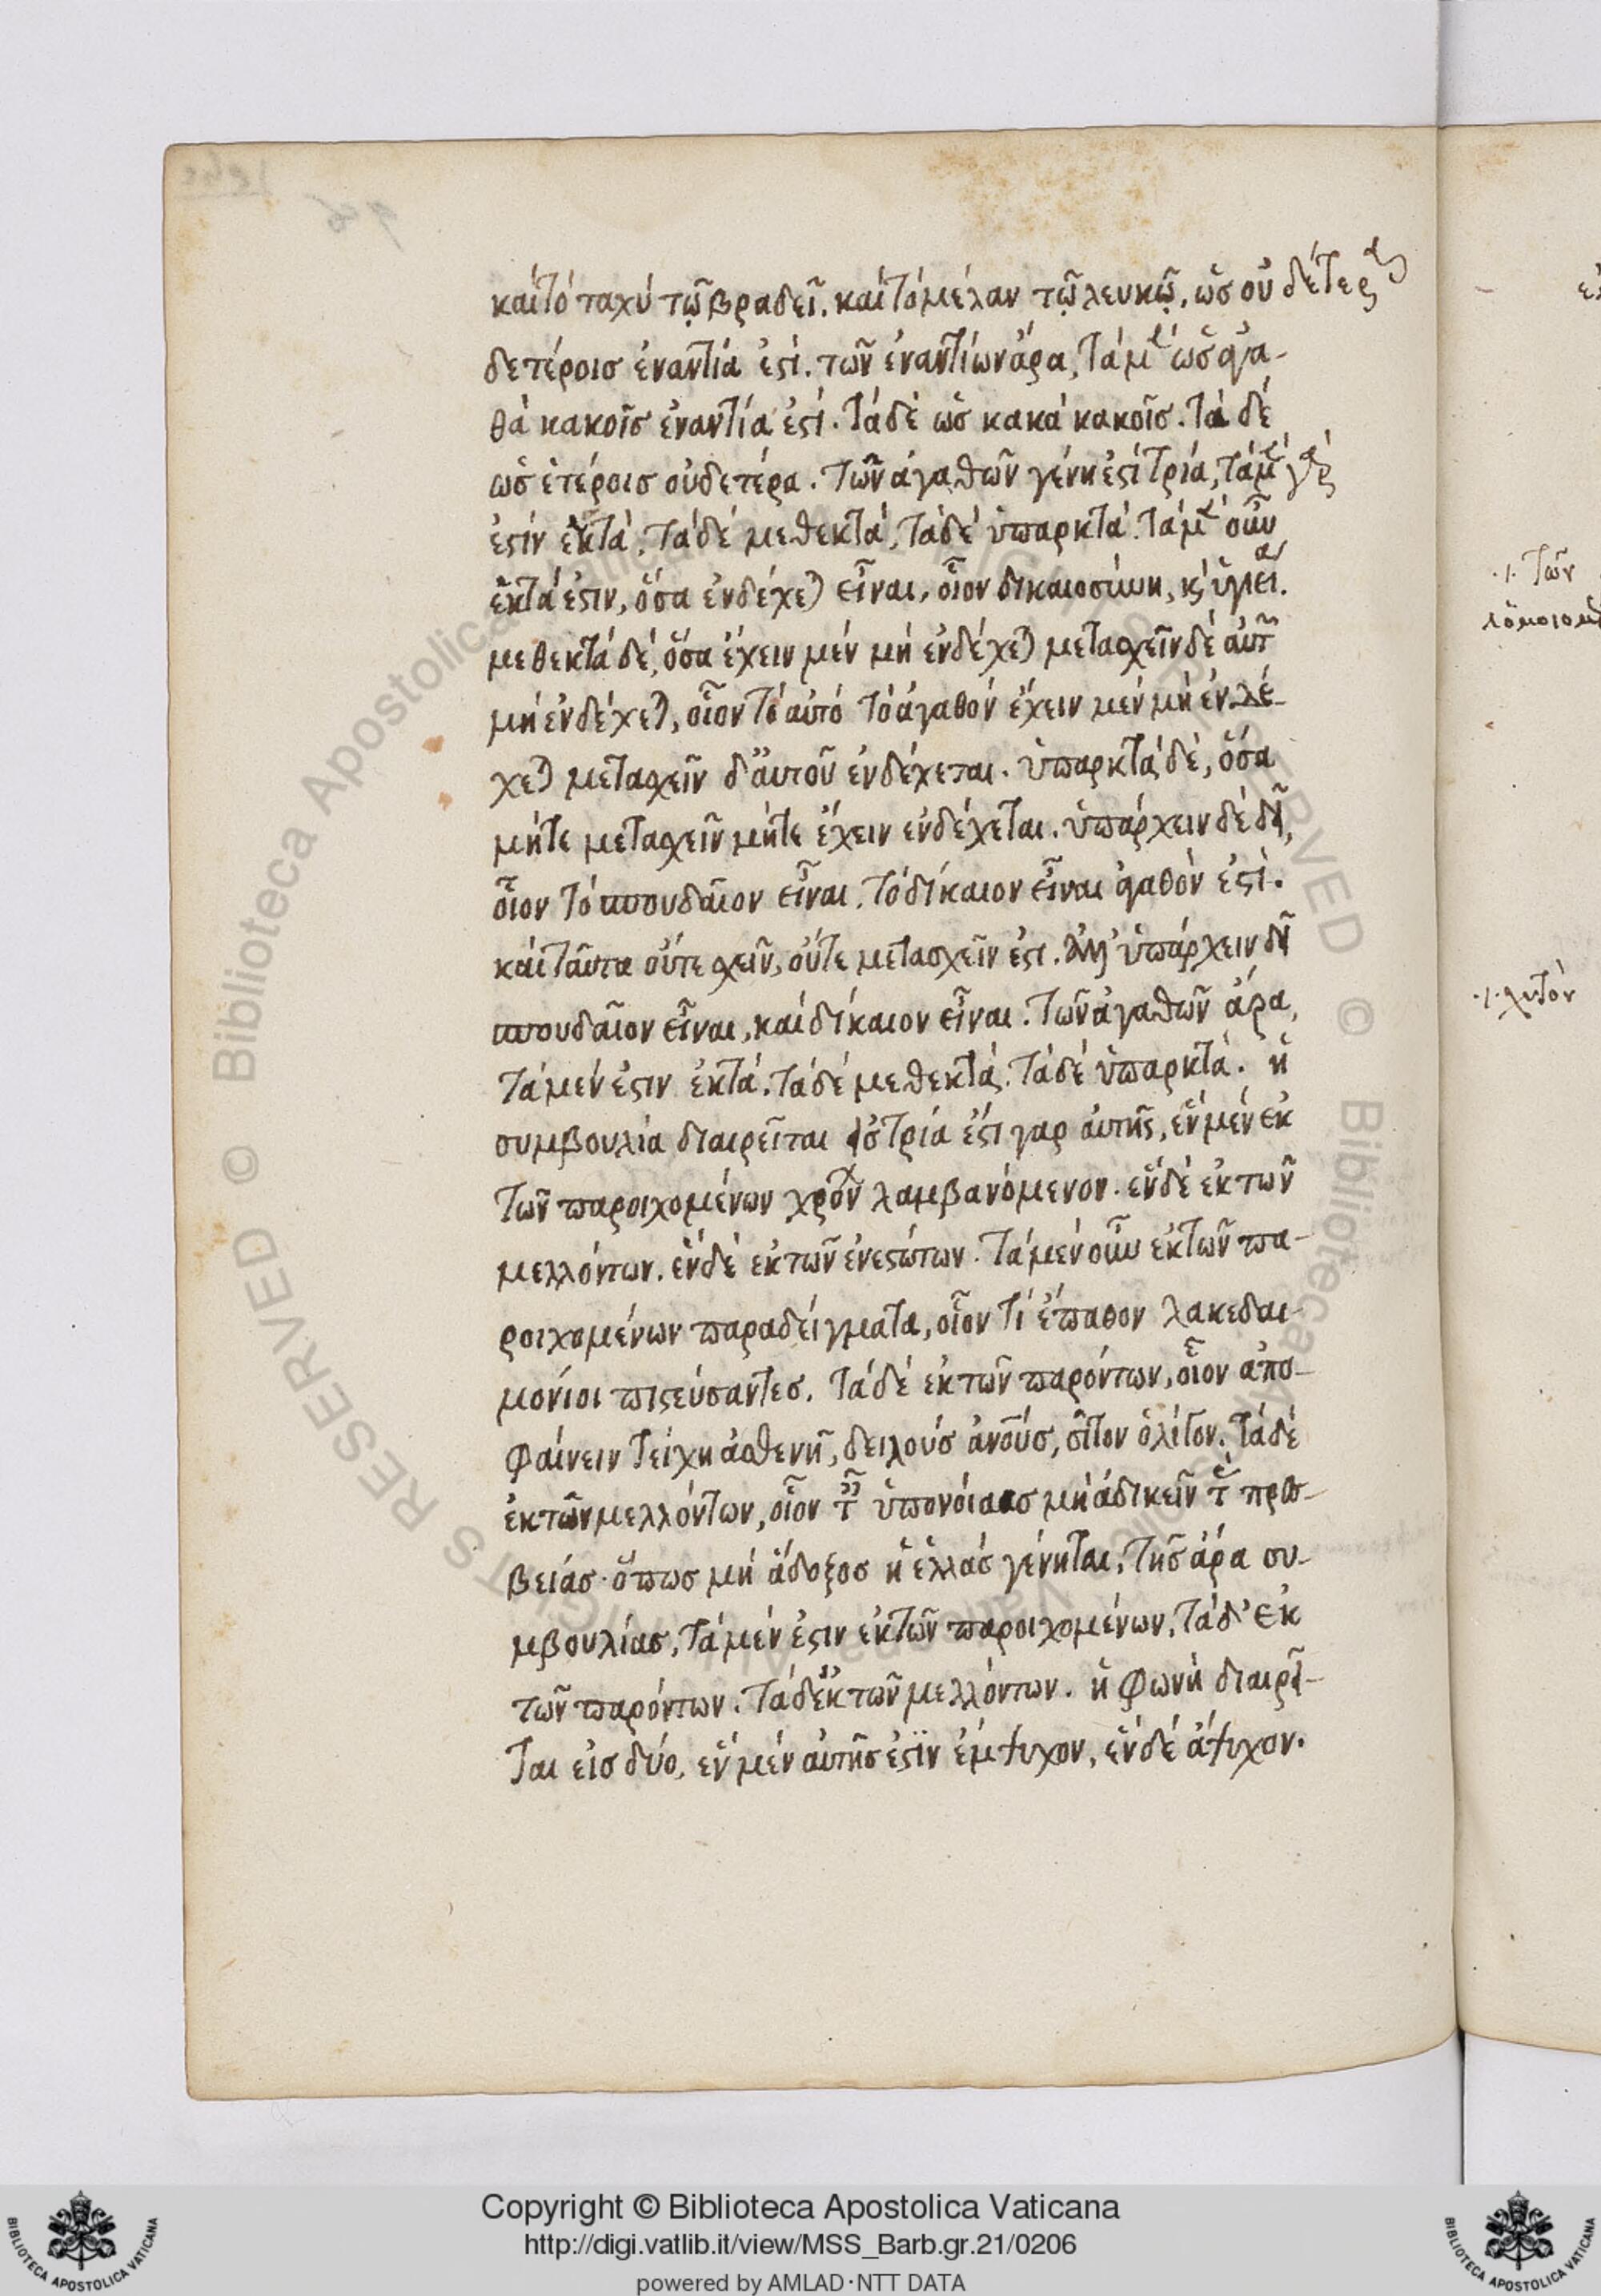 καὶ τὸ ταχὺ τῷ βραδεῖ. καὶ τὸ μέλαν τῷ λευκῷ, ὡς οὐδέτερα
δετέροισ ἐναντία ἐστί. τῶν ἐναντίων ἄρα, τὰ μὲν ὡς ἀγα-
θὰ κακοῖσ ἐναντία ἐστί. τὰ δὲ ὡς κακὰ κακοῖσ. τὰ δὲ
ὡς ἑτέροισ οὐδετέρα. τῶν ἀγαθῶν γένη ἐστὶ τρία, τὰ μὲν γάρ
ἐστιν ἑκτά. τὰ δὲ μεθεκτά, τὰ δὲ ὑπαρκτά. τὰ μὲν οὖν
ἑκτά ἐστιν, ὅσα ἐνδέχεται εἶναι, οἷον δικαιοσύνη, καὶ ὑγίεια.
μεθεκτὰ δὲ, ὅσα ἔχειν μὲν μὴ ἐνδέχεται μετασχεῖν δὲ αὐτῶν
μὴ ἐνδέχεται, οἷον τὸ αὐτὸ τὸ ἀγαθὸν ἔχειν μὲν μὴ ἐνδέ-
χεται μετασχεῖν δ' αὐτοῦ ἐνδέχεται. ὑπαρκτὰ δὲ, ὅσα
μήτε μετασχεῖν μήτε ἔχειν ἐνδέχεται. ὑπάρχειν δὲ δεῖ,
οἷον τὸ σπουδαῖον εἶναι. τὸ δίκαιον εἶναι ἀγαθὸν ἐστί.
καὶ ταῦτα οὔτε σχεῖν, οὔτε μετασχεῖν ἐστι. ἀλλ' ὑπάρχειν δεῖ
σπουδαῖον εἶναι, καὶ δίκαιον εἶναι. τῶν ἀγαθῶν ἄρα,
τὰ μέν ἐστιν ἑκτά. τὰ δὲ μεθεκτά. τὰ δὲ ὑπαρκτά. ἡ
συμβουλία διαιρεῖται εἰς τρία ἔστι γαρ αὐτῆς, ἓν μὲν ἐκ
τῶν παροιχομένων χρόνων λαμβανόμενον. ἓν δὲ ἐκ τῶν
μελλόντων. ἓν δὲ ἐκ τῶν ἐνεστώτων. τὰ μὲν οὖν ἐκ τῶν πα-
ροιχομένων παραδείγματα, οἷον τί ἔπαθον λακεδαι-
μονίοι πιστεύσαντεσ. τὰ δὲ ἐκ τῶν παρόντων, οἷον ἀπο-
φαίνειν τείχη ἀσθενῆ, δειλοὺσ ἀνουσ, σῖτον ὀλίτον. τὰ δὲ
ἐκ τῶν μελλόντων, οἷον ὑπονόιασ μὴ ἀδικεῖν πρεσ-
βειάσ. ὅπωσ μὴ ἄδοξοσ ἡ ἑλλὰσ γένηται. τῆσ ἄρα συ-
μβουλίασ, τὰ μέν ἐστιν ἐκ τῶν παροιχομένων. τὰ δ' ἐκ
τῶν παρόντων. τὰ δ' ἐκ τῶν μελλόντων. ἡ φωνὴ διαιρεῖ-
ται εἰσ δύο. ἓν μὲν αὐτῆσ ἐστὶν ἔμψυχον, ἓν δὲ ἄψυχον.
.1. τῶν
Copyright © Biblioteca Apostolica Vaticana
http://digi.vatlib.it/view/MSS_Barb.gr.21/0206
powered by AMLAD·NTT DATA
BIBLIOTECA APOSTOLICA VATICANA
BIBLIOTECA APOSTOLICA VATICANA